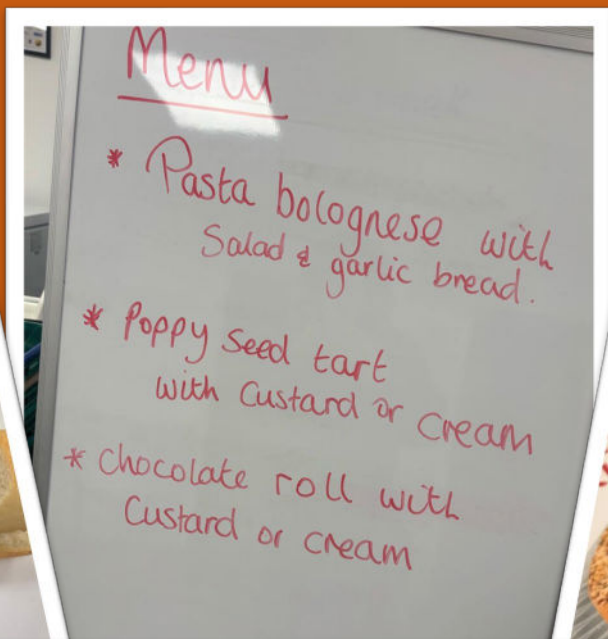 Menu
* Pasta bolognese with
Salad & garlic bread.
* Poppy Seed tart
with Custard or cream
* chocolate roll with
Custard or cream